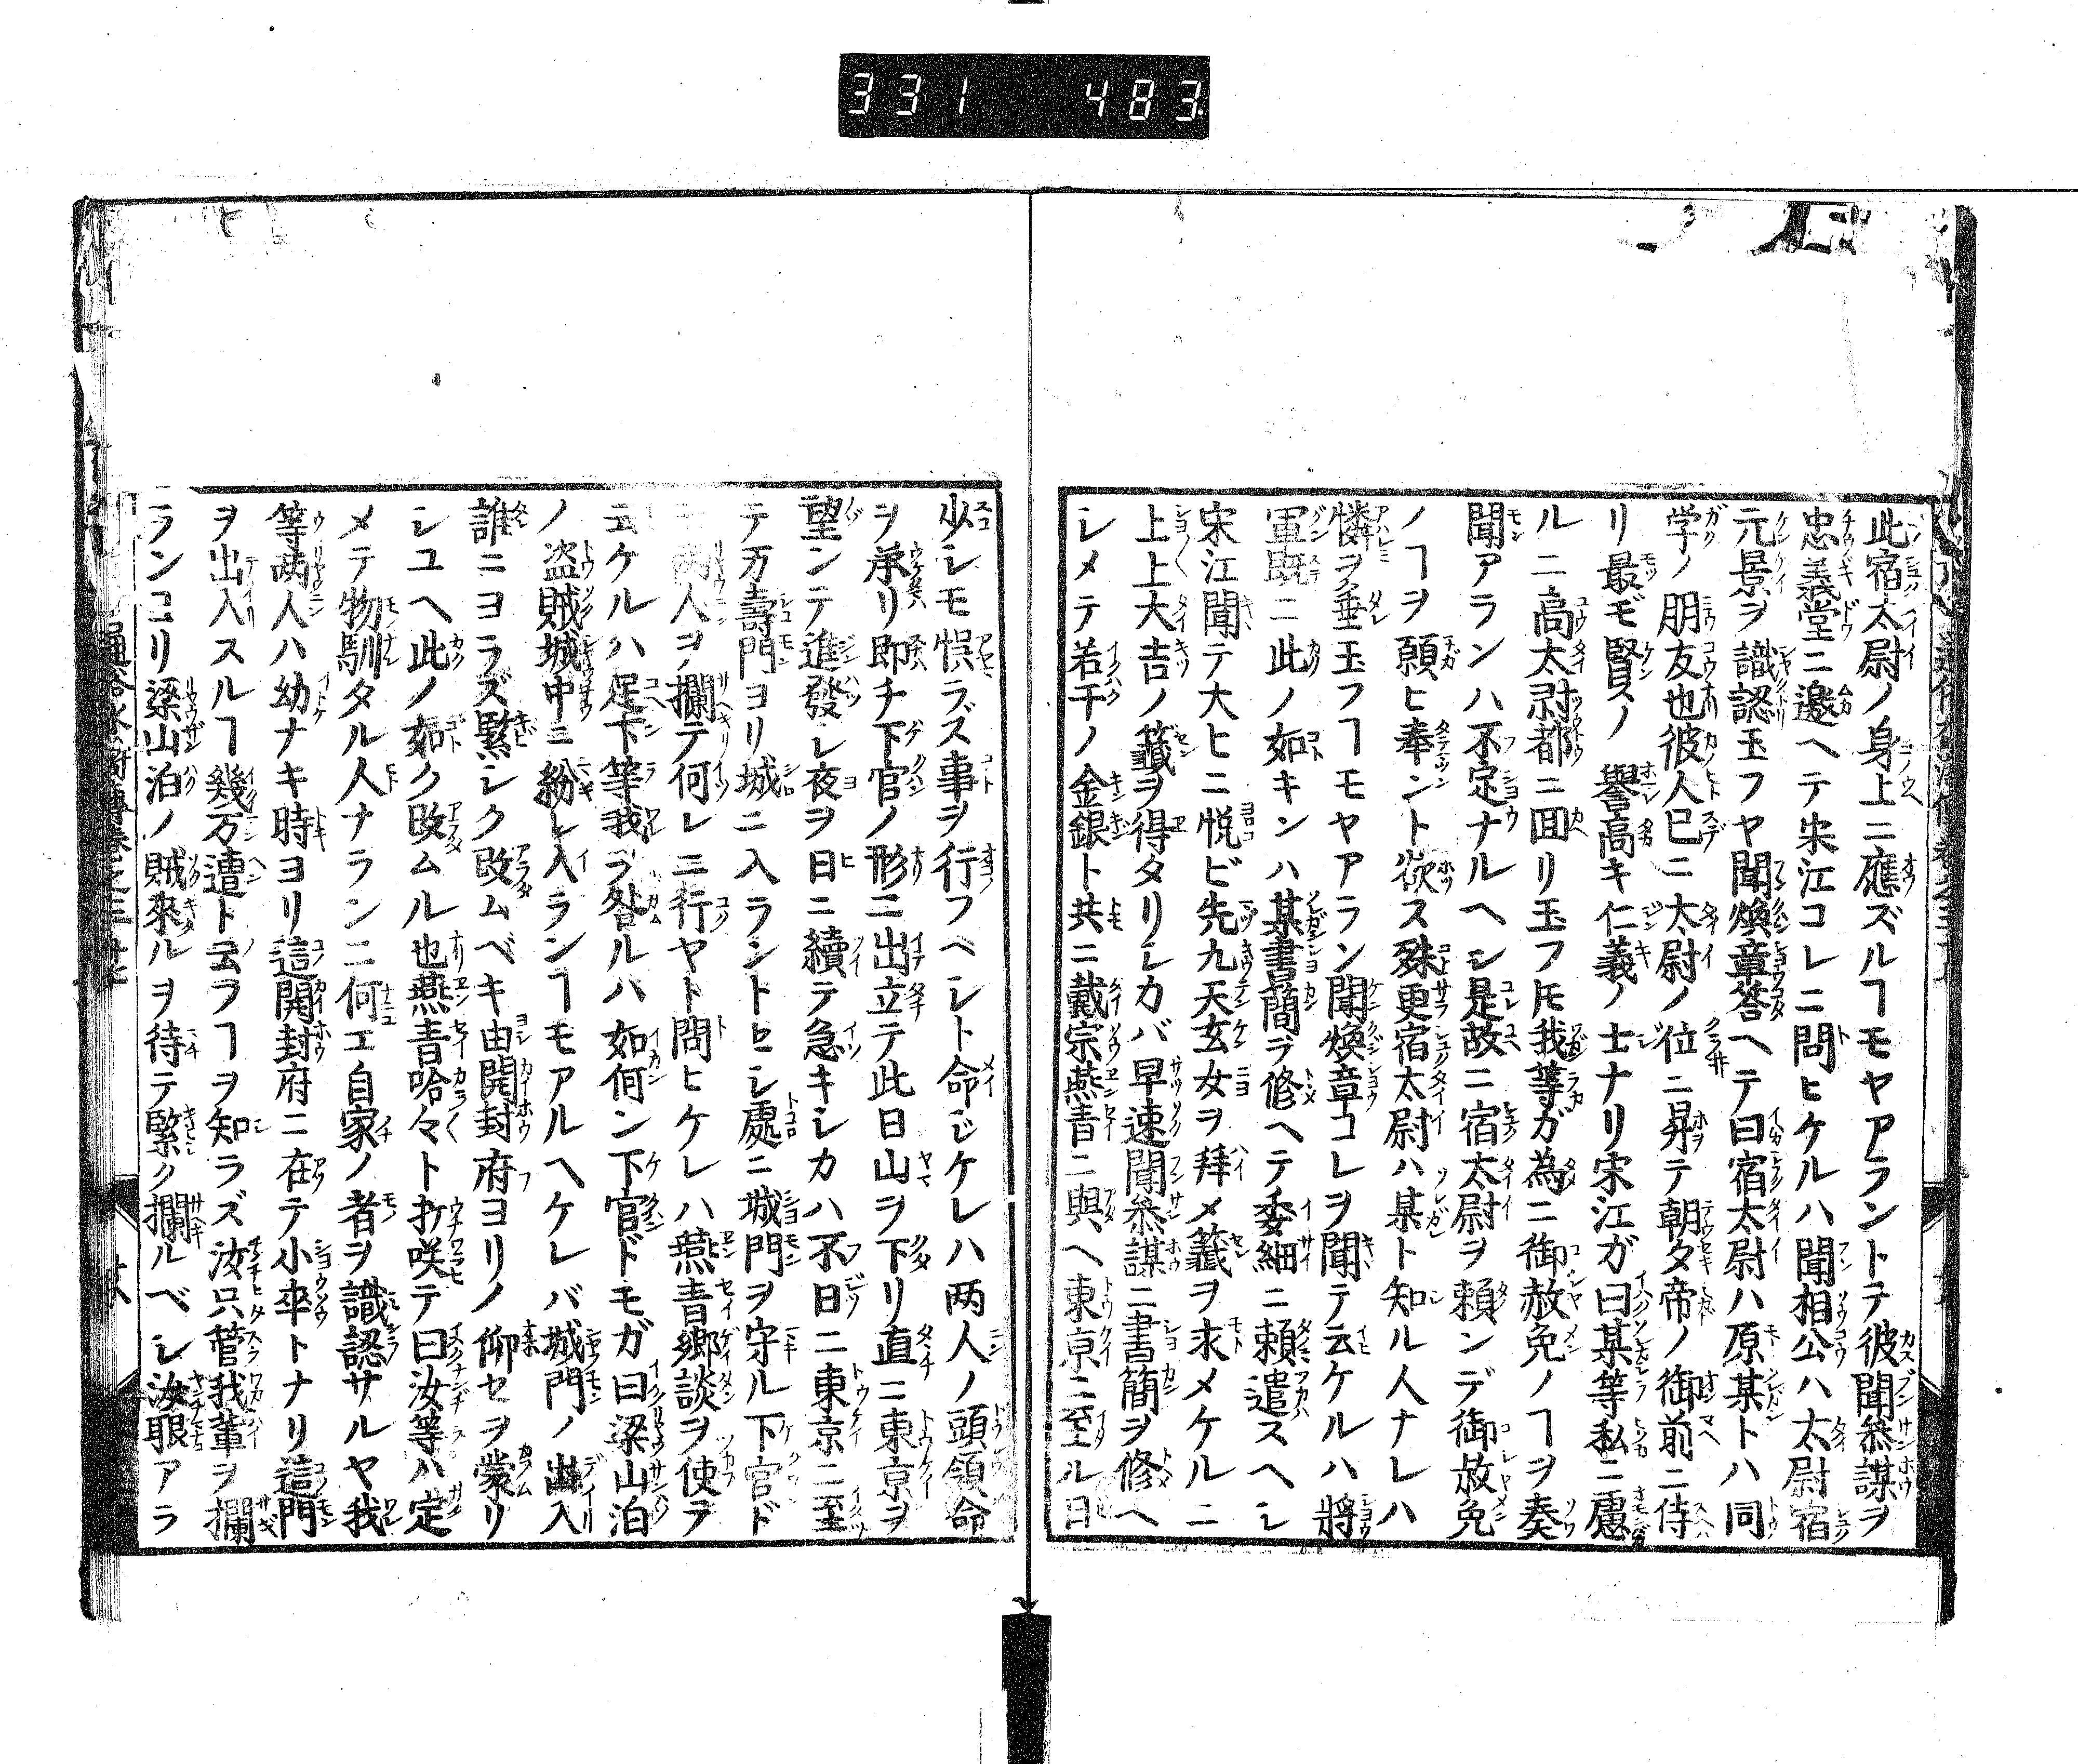 331 483
此宿太尉ノ身上ニ應ズルヿモヤアラントテ彼聞叅謀ヲ
忠義堂ニ邀ヘテ宋江コレニ問ヒケルハ聞相公ハ太尉宿
元景ヲ識認玉フヤ聞煥章答ヘテ曰宿太尉ハ原某トハ同
学ノ朋友也彼人已ニ太尉ノ位ニ昇テ朝夕帝ノ御前ニ侍
リ最モ賢スノ譽高キ仁義ノ士ナリ宋江ガ曰某等私ニ慮
ルニ高太尉都ニ囬リ玉フ𪜈我等ガ為ニ御赦免ノヿヲ奏
聞アランハ不定ナルヘシ是故ニ宿太尉ヲ頼ンデ御赦免
ノヿヲ願ヒ奉ント欲ス殊更宿太尉ハ某ト知ル人ナレハ
憐ヲ垂玉フヿモヤアラン聞煥章コレヲ聞テ云ケルハ將
軍既ニ此ノ如キンハ某書簡ヲ修ヘテ委細ニ頼遣スヘシ
宋江聞テ大ヒニ悦ビ先九天玄女ヲ拜メ籤ヲ求メケルニ
上上大吉ノ籤ヲ得タリシカバ早速聞叅謀ニ書簡ヲ修ヘ
シメテ若干ノ金銀ト共ニ戴宗燕青ニ與ヘ東京ニ至ル日
少シモ悞ラズ事ヲ行フベシト命ジケレハ两人ノ頭領命
ヲ承リ即チ下官ノ形ニ出立テ此日山ヲ下リ直ニ東京ヲ
望ンテ進發シ夜ヲ日ニ續テ急キシカハ不日ニ東京ニ至
テ万壽門ヨリ城ニ入ラントセシ處ニ城門ヲ守ル下官ド
モ两人ヲ攔テ何レニ行ヤト問ヒケレハ燕青郷談ヲ使テ
云ケルハ足下等我ヲ咎ルハ如何ン下官ドモガ曰梁山泊
ノ盗賊城中ニ紛レ入ランヿモアルヘケレバ城門ノ出入
誰ニヨラズ緊シク改ムベキ由開封府ヨリノ仰セヲ蒙リ
シユヘ此ノ如ク改ムル也燕青哈々ト打咲テ曰汝等ハ定
メテ物馴タル人ナランニ何エ自家ノ者ヲ識認サルヤ我
等两人ハ幼ナキ時ヨリ這開封府ニ在テ小卒トナリ這門
ヲ出入スルヿ幾万遭ト云フヿヲ知ラズ汝只管我輩ヲ攔
ランコリ梁山泊ノ賊來ルヲ待テ緊ク攔ルベシ汝眼アラ